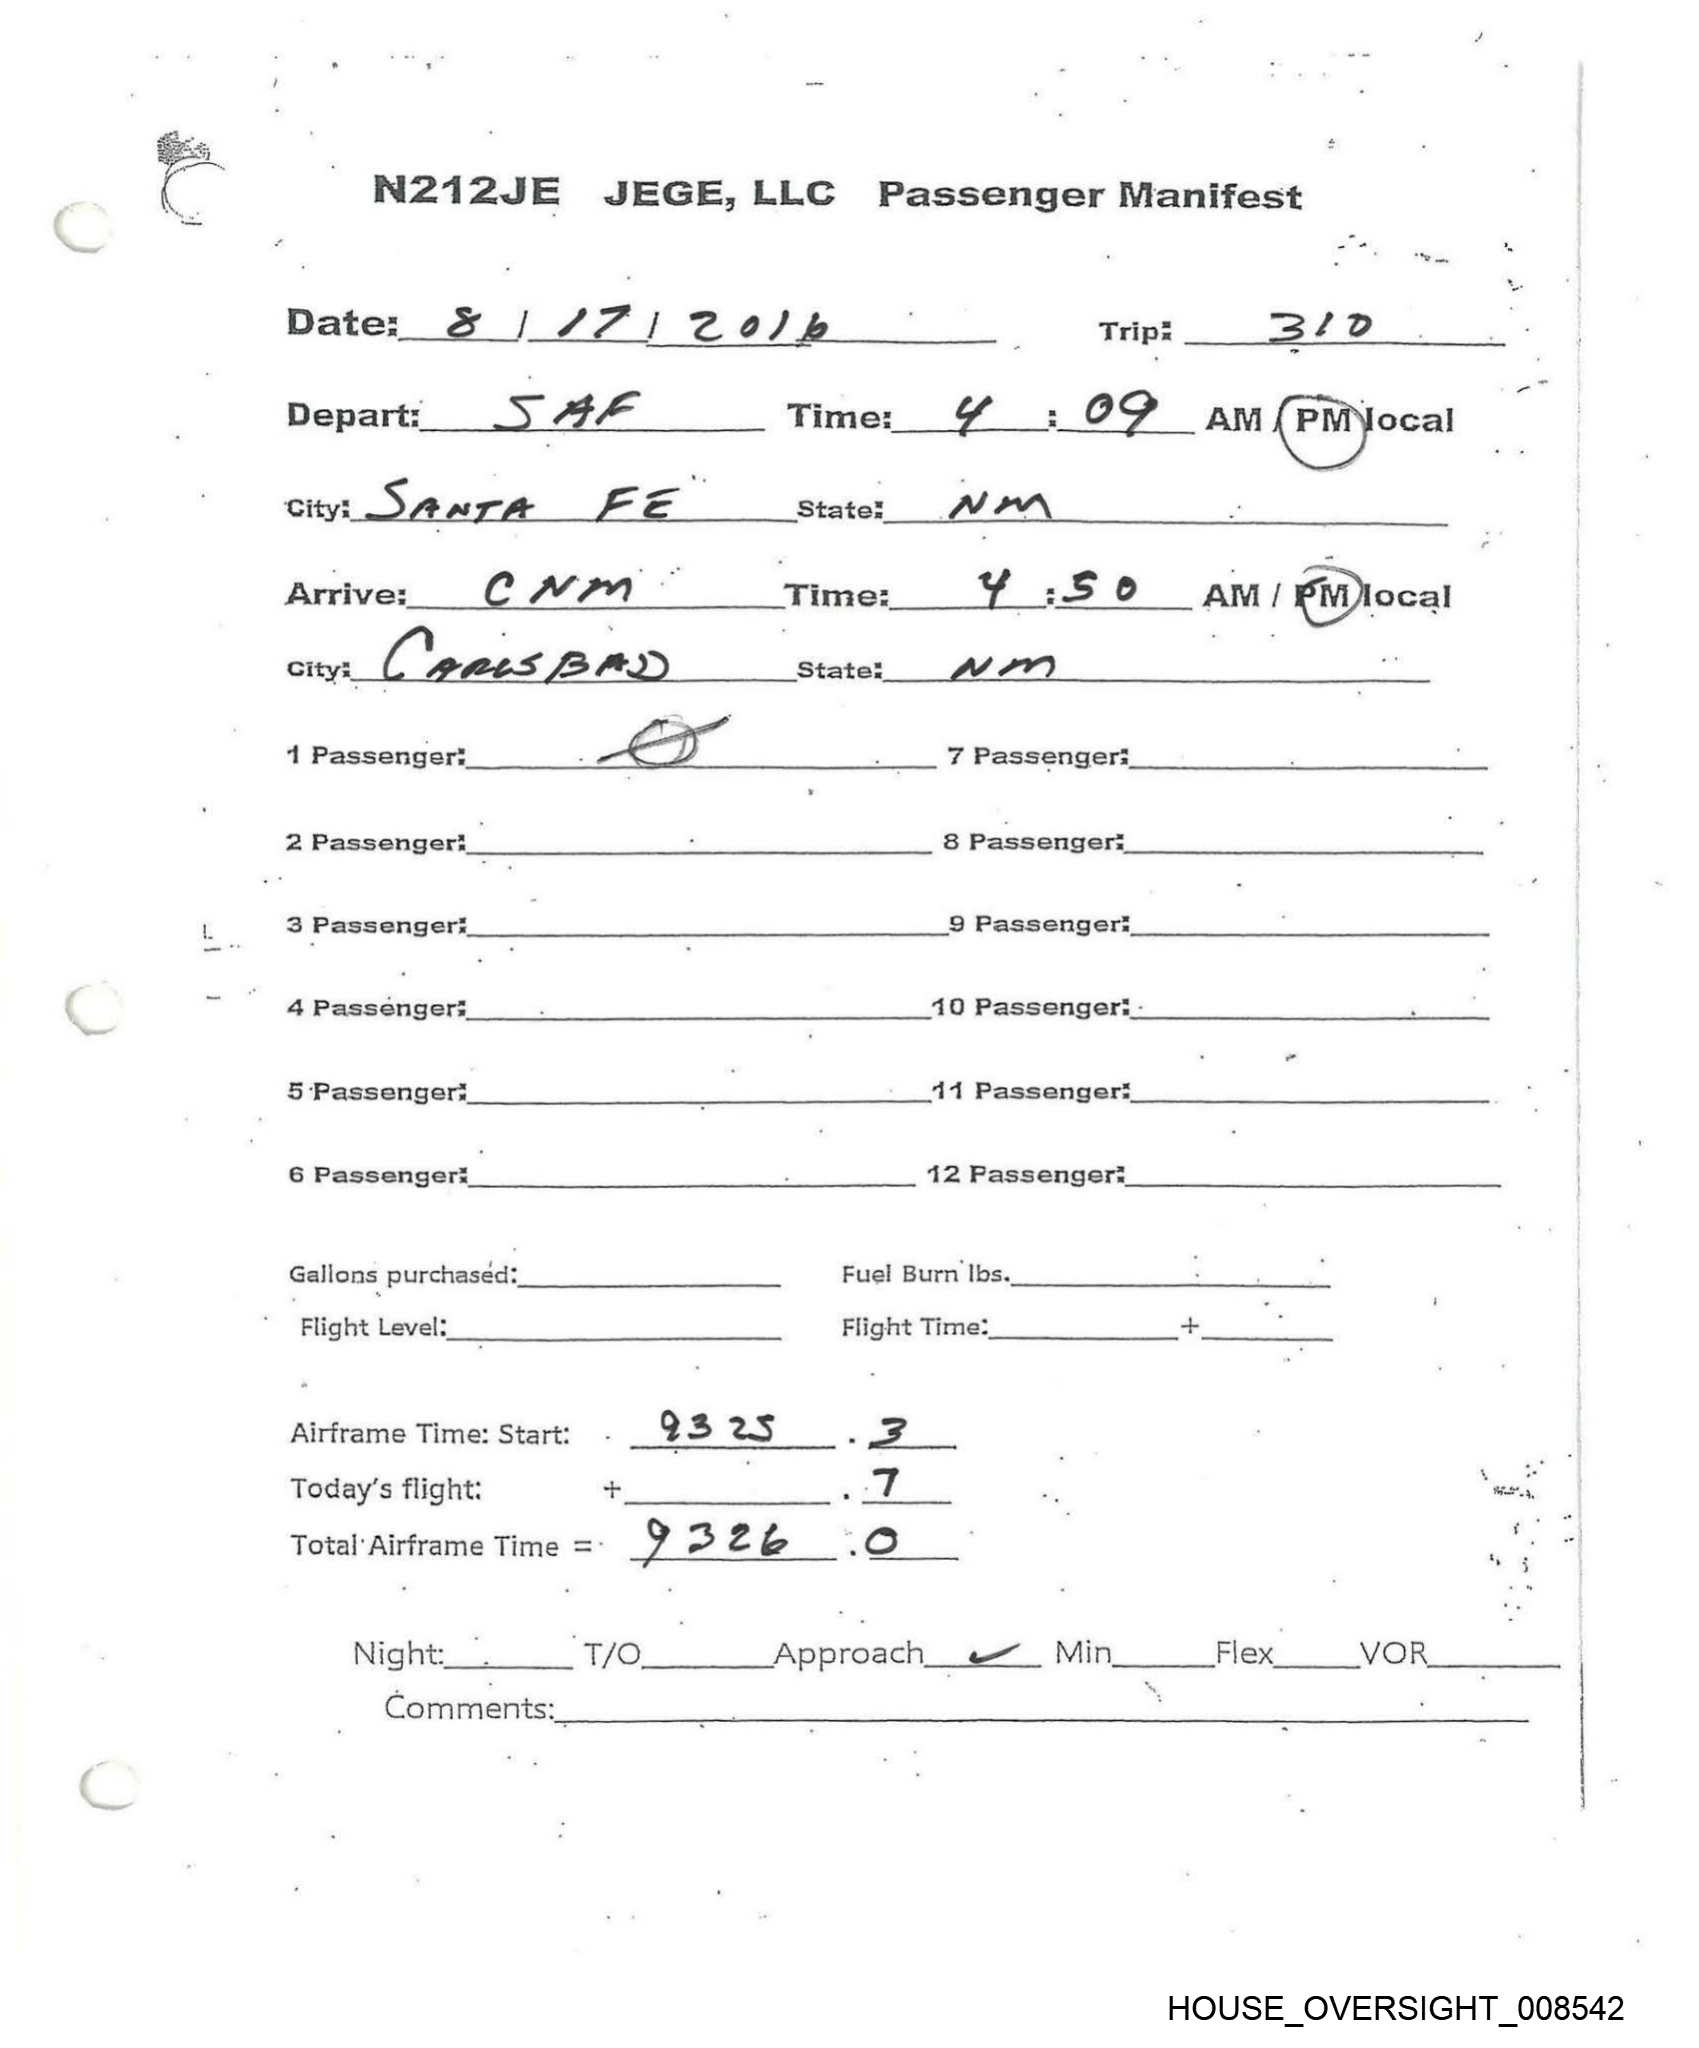 N212JE JEGE, LLC Passenger Manifest
Date: 8 / 17 / 2016 Trip: 310
Depart: SAF Time: 4 : 09 AM / PM local
City: SANTA FE State: NM
Arrive: CNM Time: 4 : 50 AM / PM local
City: CARLSBAD State: NM
1 Passenger: Ø 7 Passenger:
2 Passenger: 8 Passenger:
3 Passenger: 9 Passenger:
4 Passenger: 10 Passenger:
5 Passenger: 11 Passenger:
6 Passenger: 12 Passenger:
Gallons purchased: Fuel Burn lbs.
Flight Level: Flight Time: +
Airframe Time: Start: 9325 . 3
Today's flight: + . 7
Total Airframe Time = 9326 . 0
Night: T/O Approach ✓ Min Flex VOR
Comments:
HOUSE_OVERSIGHT_008542